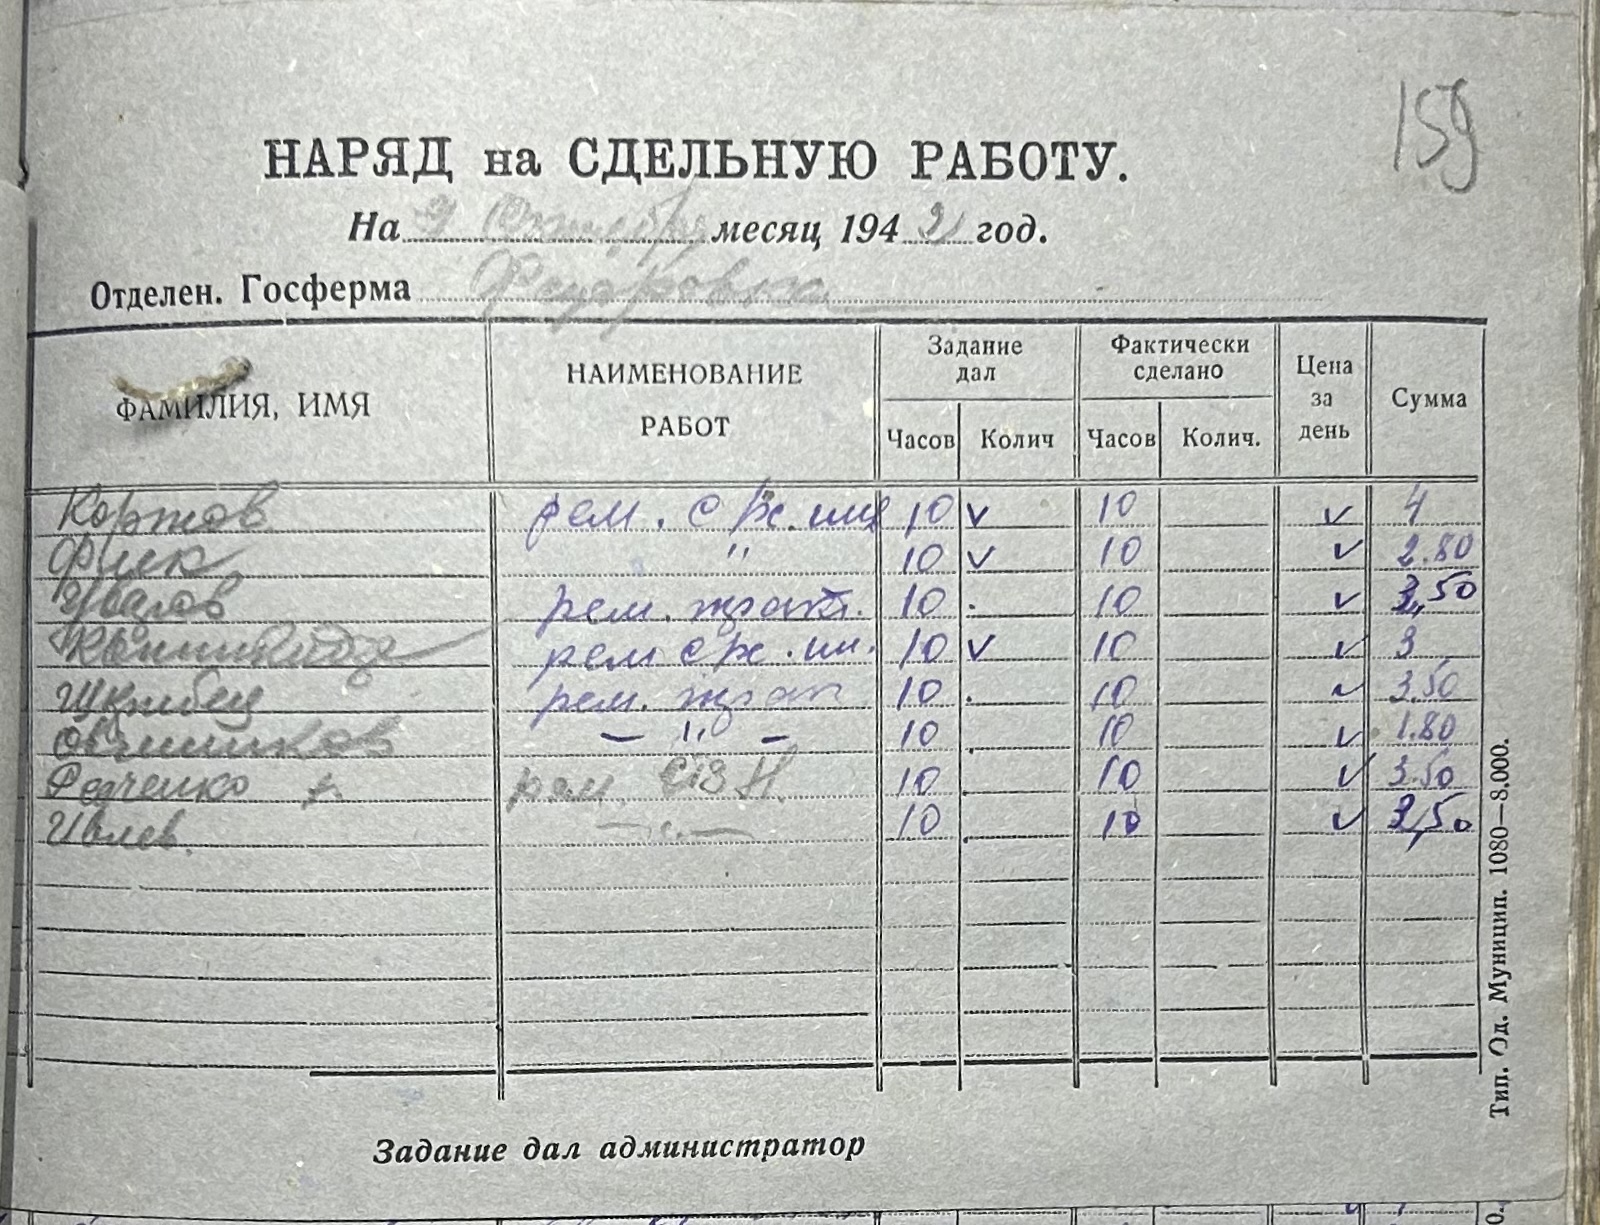 159
НАРЯД на СДЕЛЬНУЮ РАБОТУ.
На 9 Октября месяц 1942 год.
Отделен. Госферма
ФАМИЛИЯ, ИМЯ НАИМЕНОВАНИЕ РАБОТ Задание дал Фактически сделано Цена за день Сумма
Часов Колич Часов Колич.
Коржов рем. с/х. 10 v 10 v 4
Фиск " 10 v 10 v 2.80
Увагов рем. тракт. 10 . 10 v 3,50
рем с/х . 10 v 10 v 3
рем. трак 10 . 10 v 3.50
Овчинников — " — 10 . 10 v 1.80
Федченко рем. 10 . 10 v 3.50
Ивлев. — " — 10 . 10 v 3,50
Задание дал администратор
Тип. Од. Муницип. 1080—8.000.